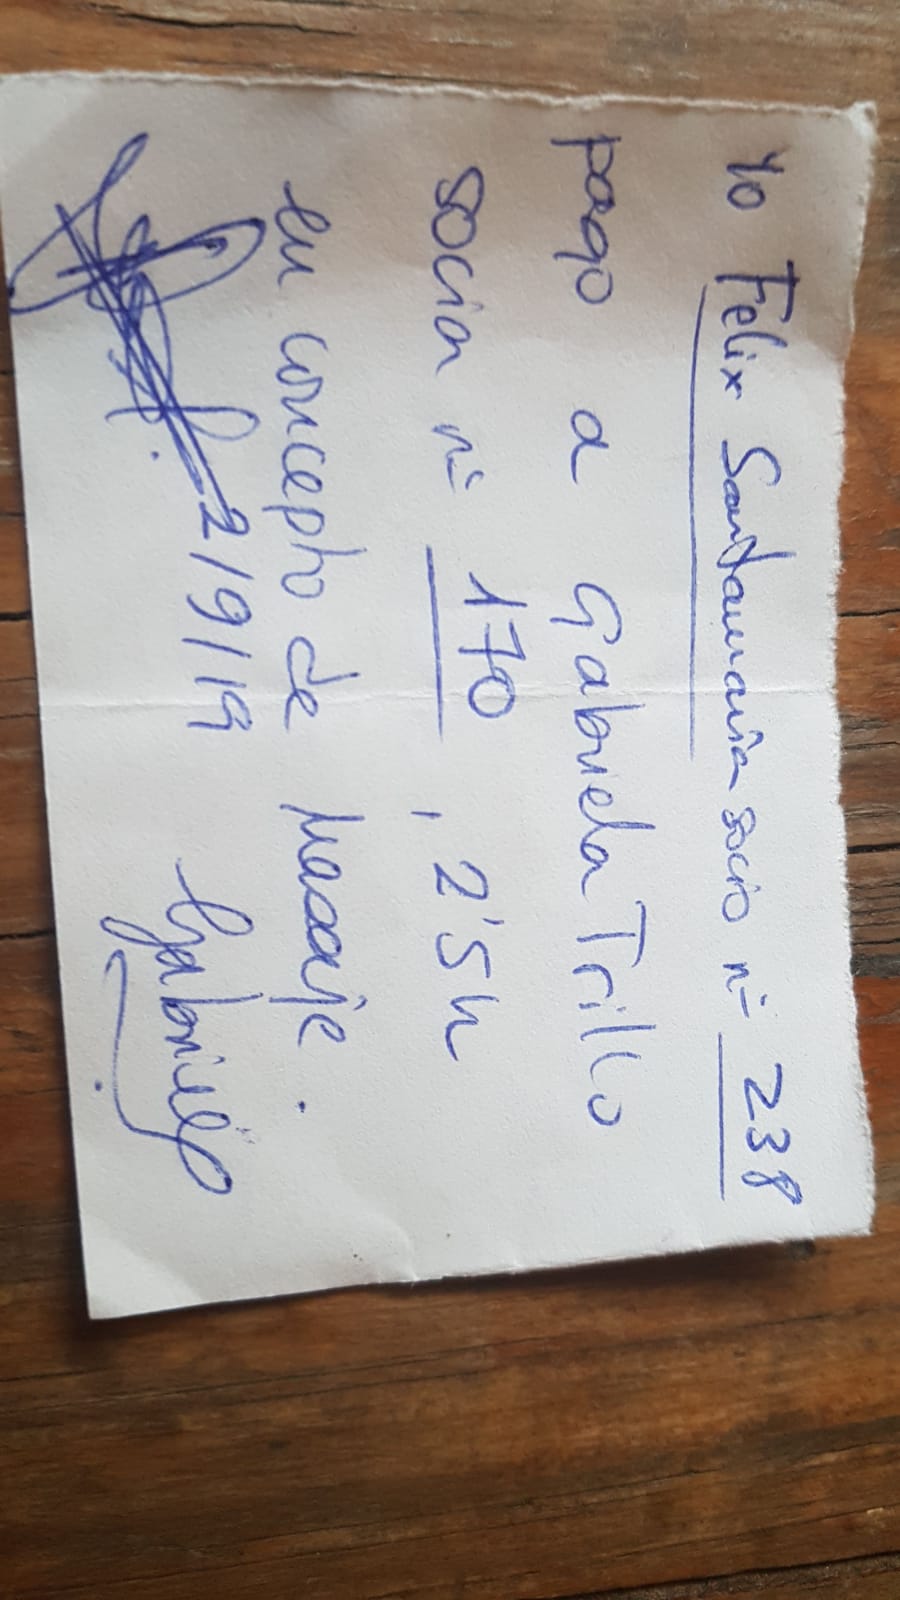 Yo Felix Santamaria socio nº 238
pago a Gabriela Trillo
socia nº 170, 2'5h
en concepto de masaje.
2/9/19 Gabriela